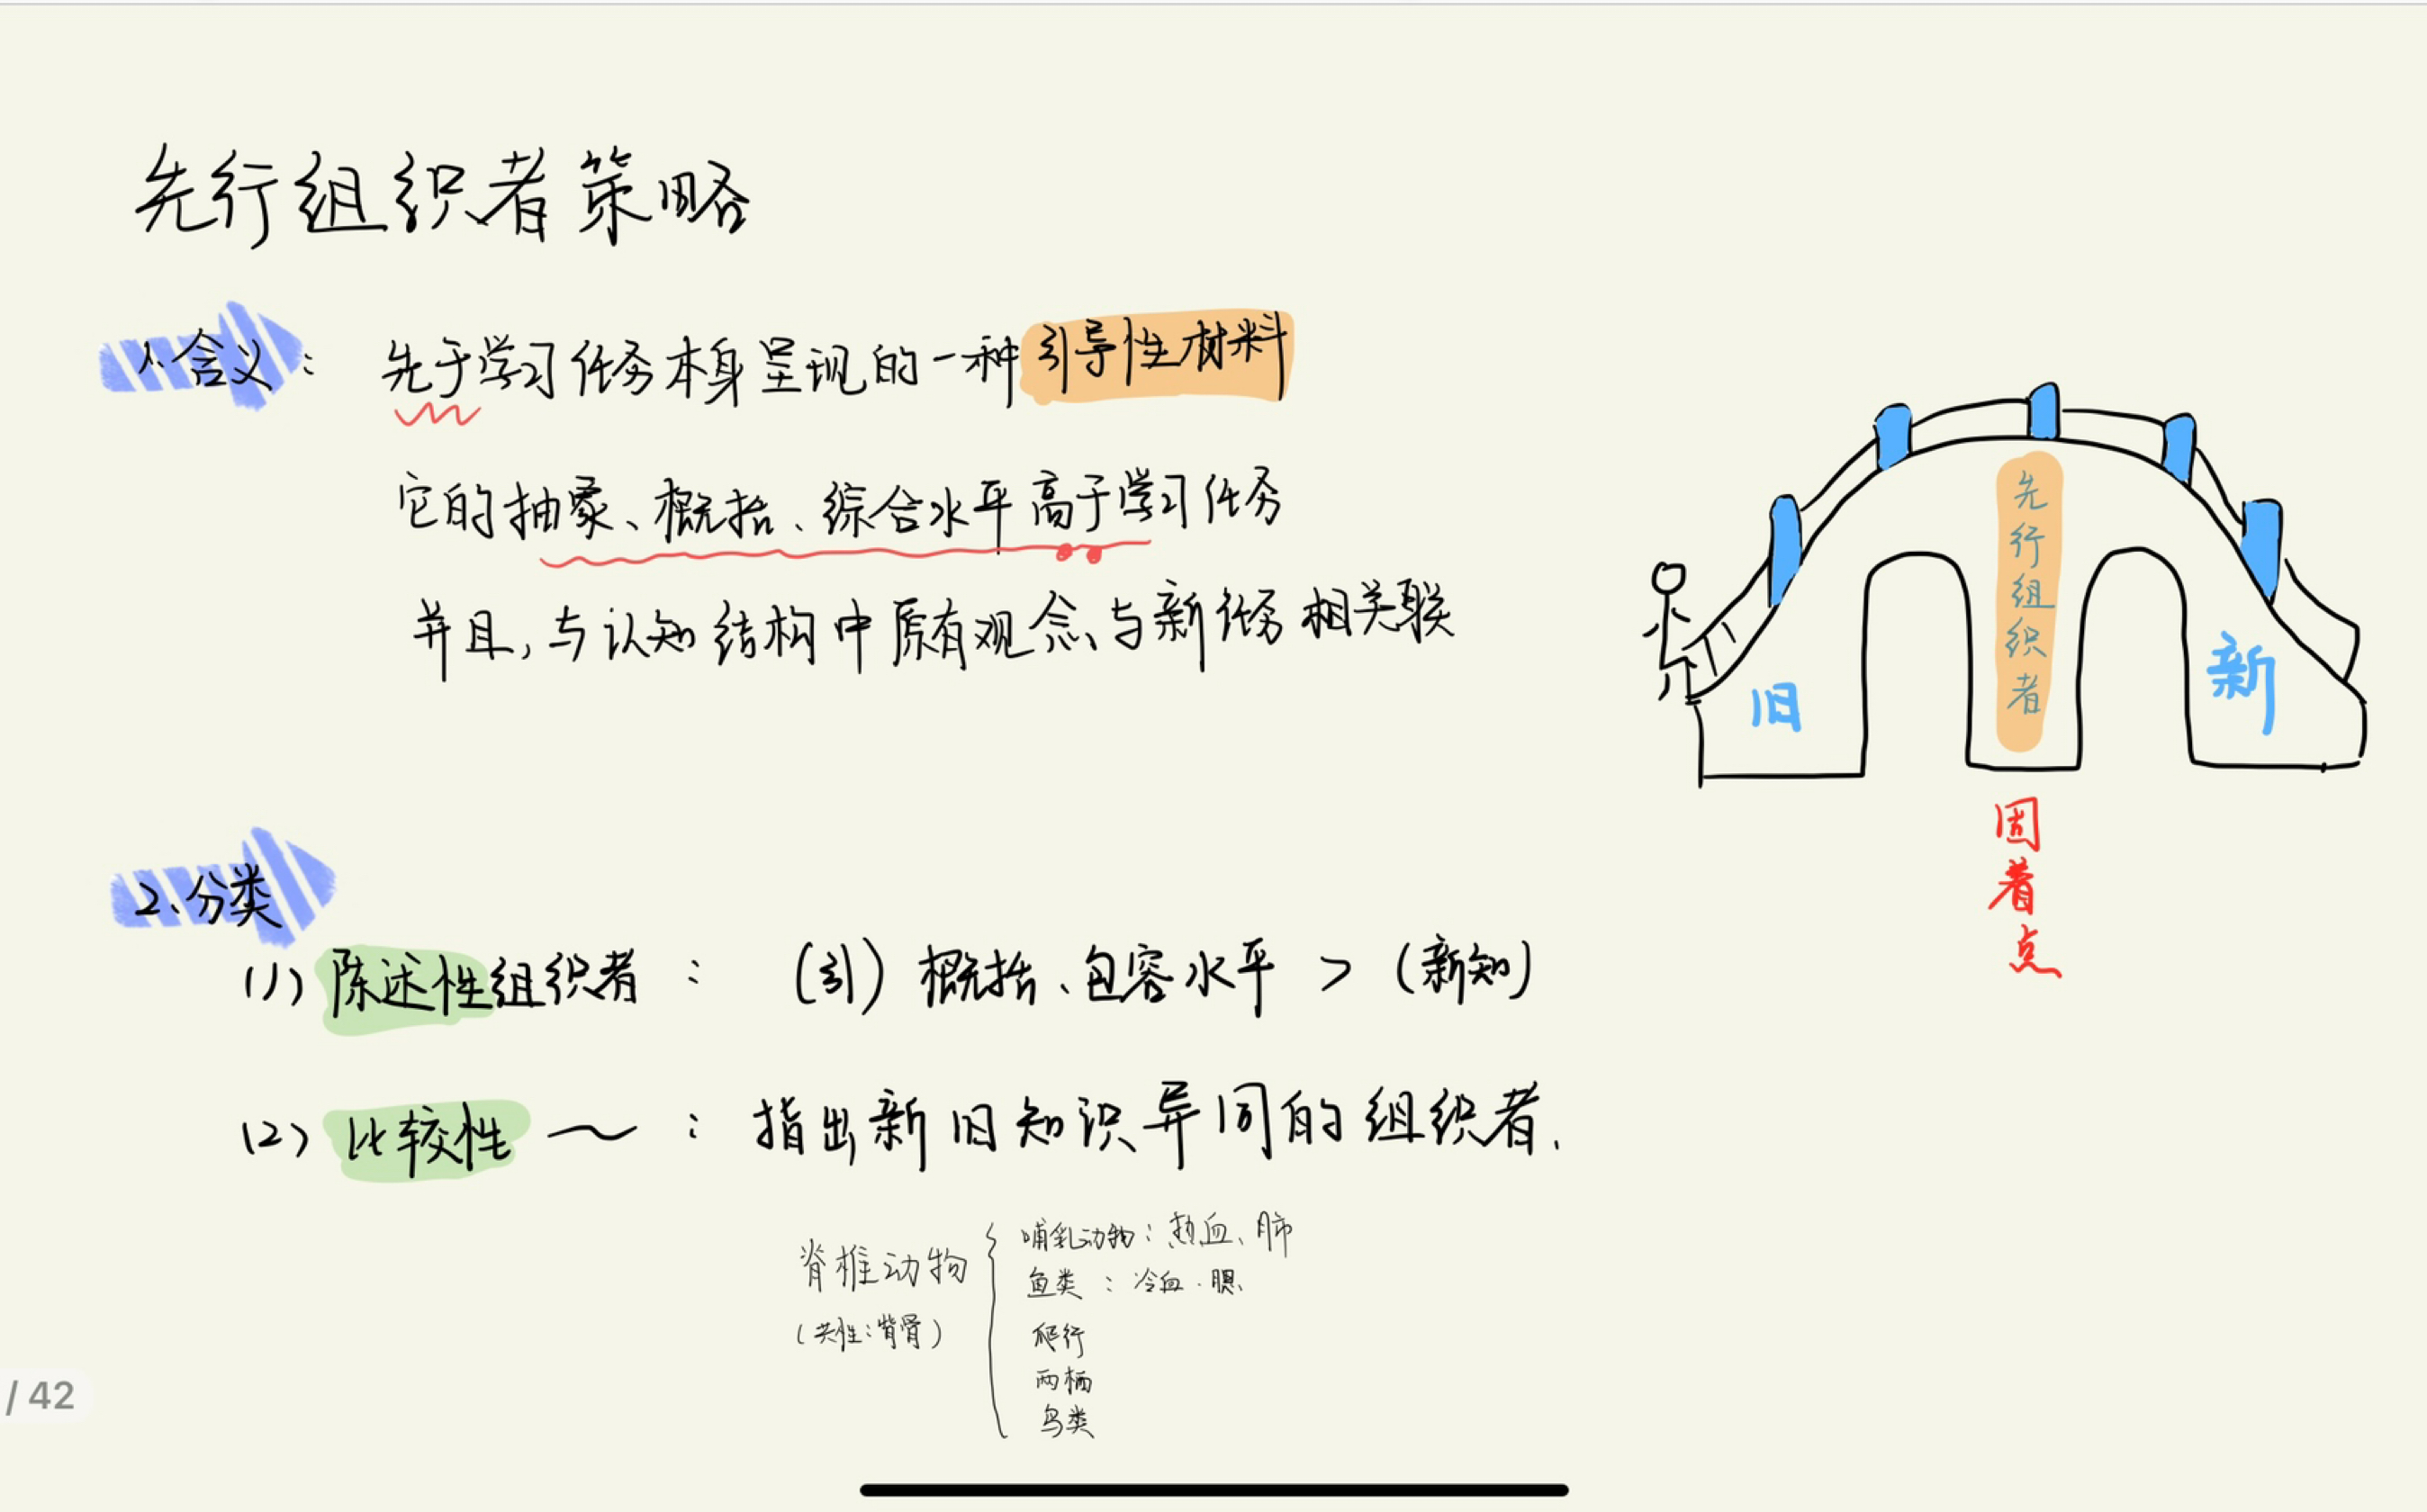 先行组织者策略
1.含义： 先于学习任务本身呈现的一种引导性材料
它的抽象、概括、综合水平高于学习任务
并且，与认知结构中原有观念、与新任务相关联
旧
先行组织者
新
固着点
2.分类
(1) 陈述性组织者 ： (引) 概括、包容水平 > (新知)
(2) 比较性～ ： 指出新旧知识异同的组织者.
脊椎动物
(共性：背骨)
哺乳动物：热血、肺
鱼类 ：冷血、腮
爬行
两栖
鸟类
/ 42